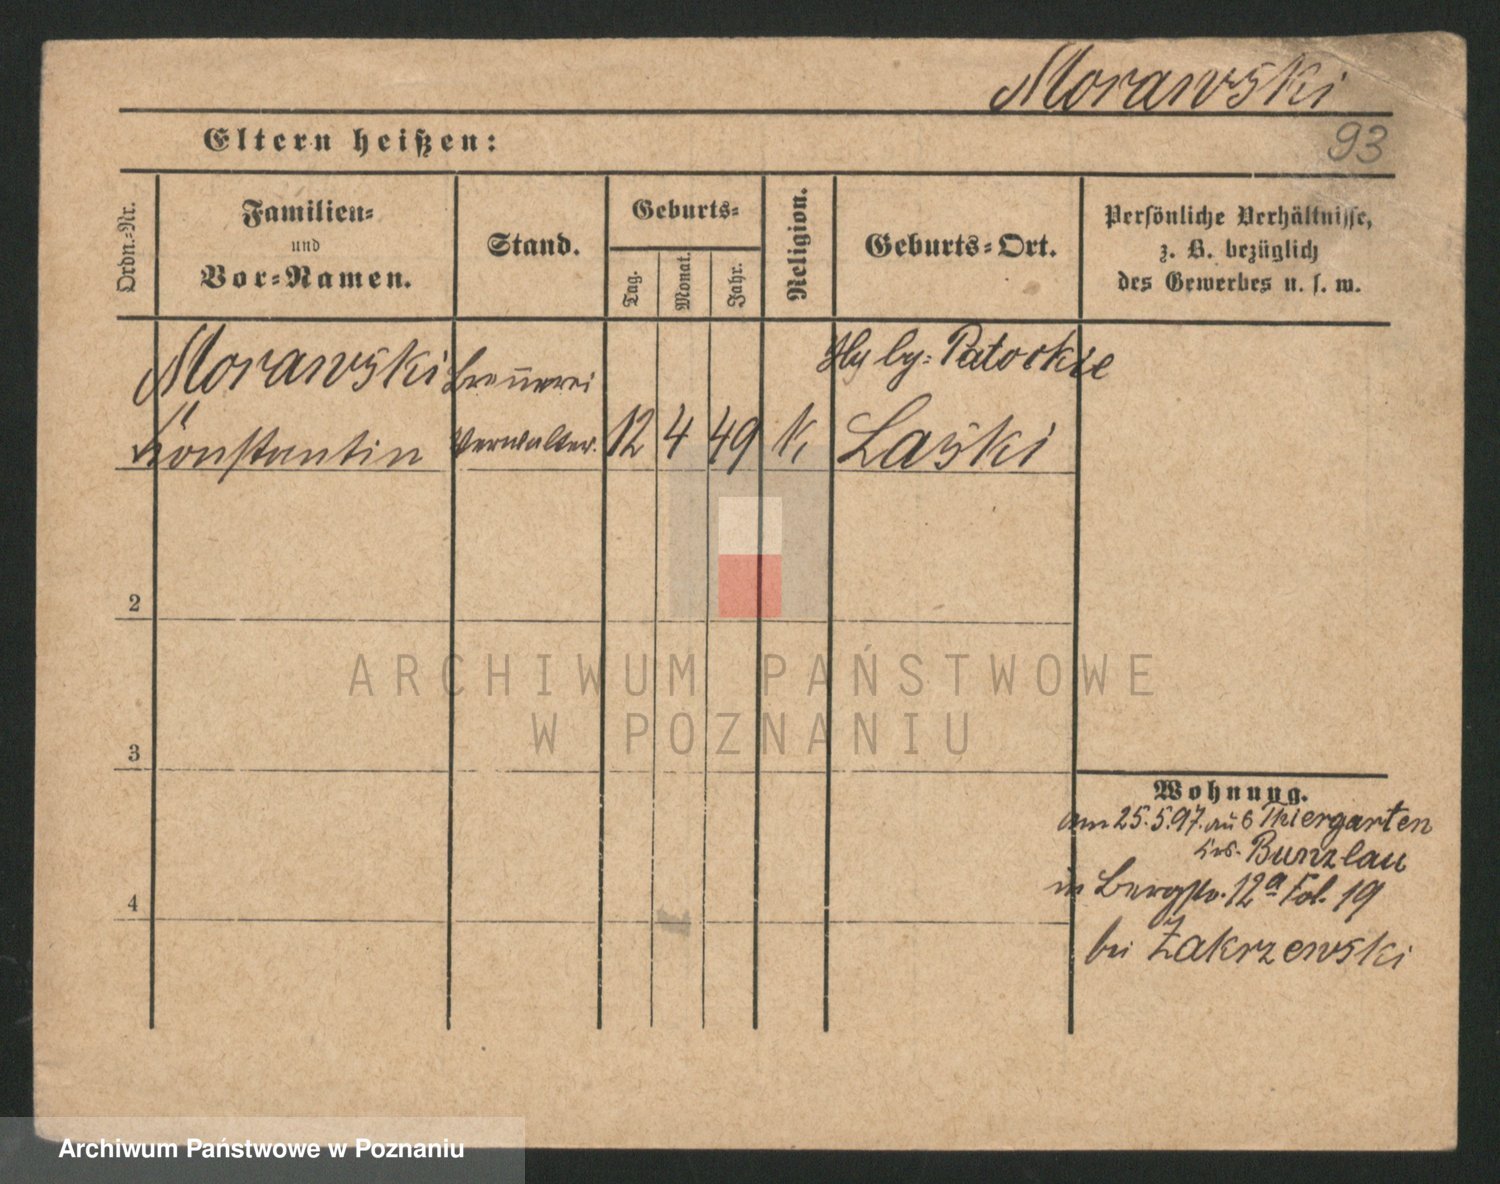 Morawski
93
Eltern heißen:
Ordn.-Nr.
Familien-
und
Vor-Namen.
Stand.
Geburts-
Tag.
Monat.
Jahr.
Religion.
Geburts-Ort.
Persönliche Verhältnisse,
z. B. bezüglich
des Gewerbes u. s. w.
Morawski Brennerei
Konstantin Verwalter. 12 4 49 k. Laski
2
3
4
Wohnung.
am 25.5.97. aus Thiergarten
Krs. Bunzlau
in Bergstr. 12a Fol. 19
bei Zakrzewski
ARCHIWUM PAŃSTWOWE
W POZNANIU
Archiwum Państwowe w Poznaniu